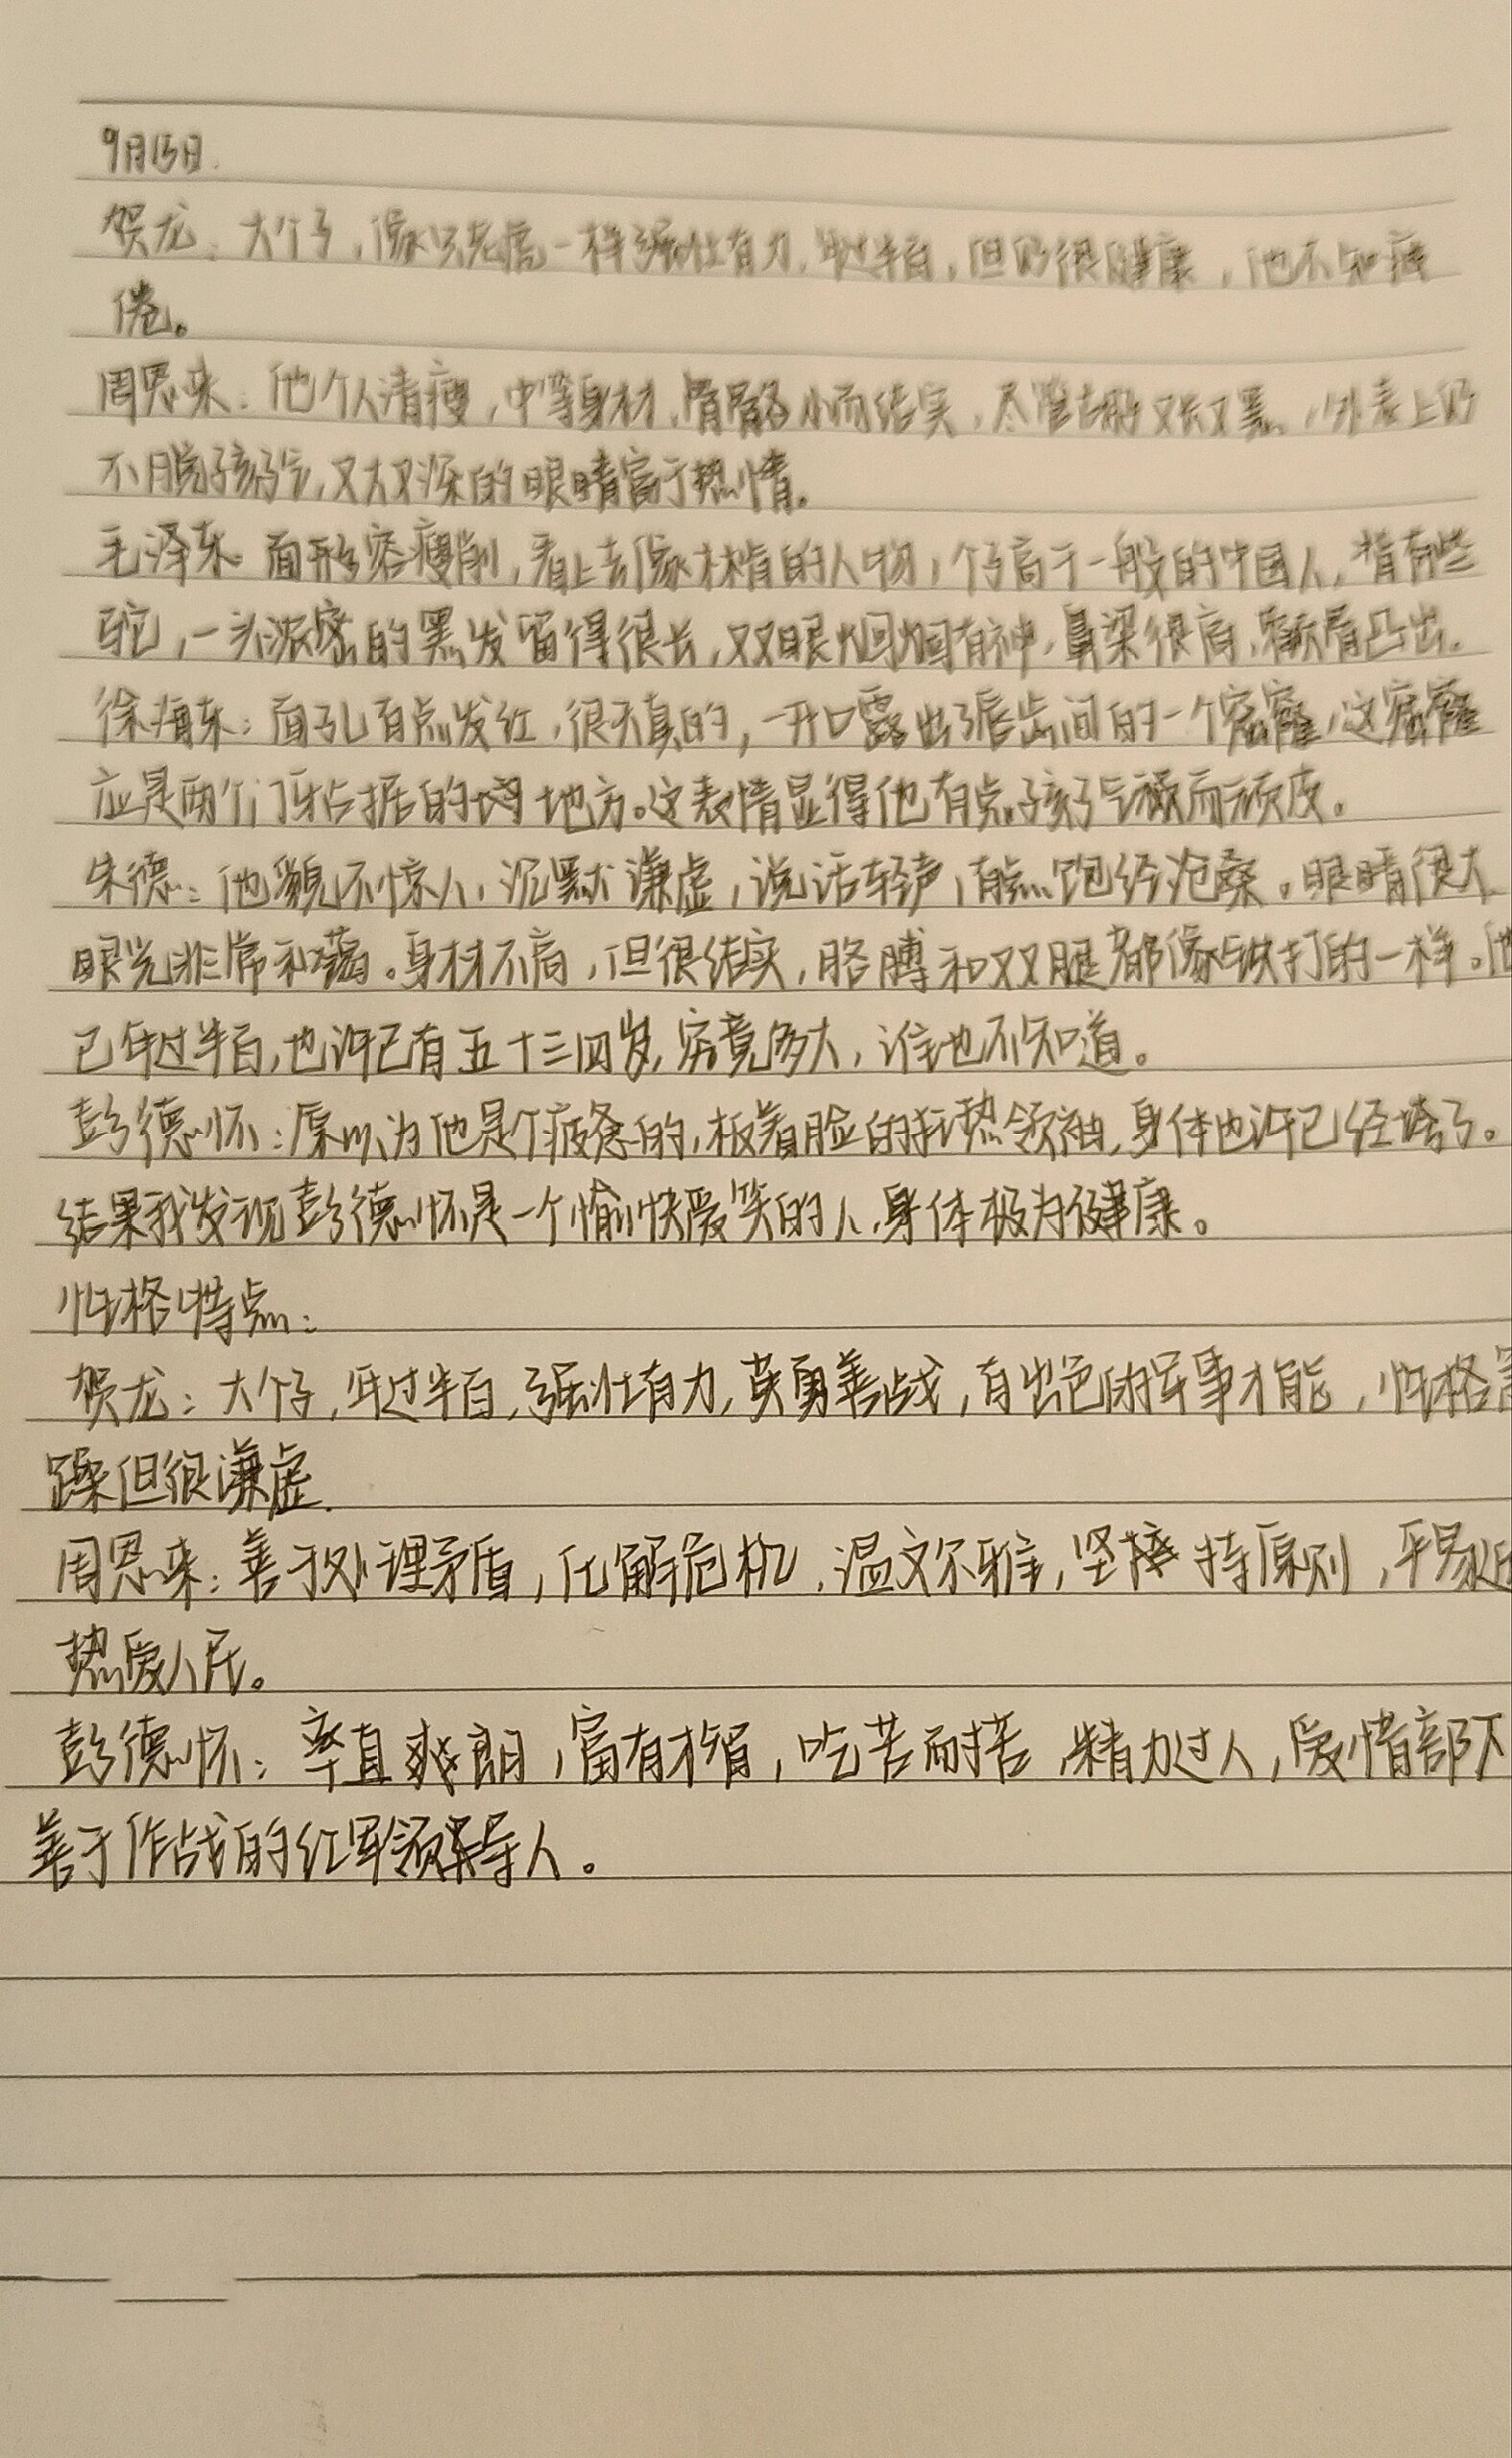 9月15日.
贺龙：大个子，像只老虎一样强壮有力，年过半百，但仍很健康，他不知疲
倦。
周恩来：他个人清瘦，中等身材，骨骼小而结实，尽管胡子又长又黑，外表上仍
不脱孩子气，又大又深的眼睛富于热情。
毛泽东：面形容瘦削，看上去像林肯的人物，个子高于一般的中国人，背有些
驼，一头浓密的黑发留得很长，双眼炯炯有神，鼻梁很高，颧骨凸出。
徐海东：面孔有点发红，很天真的，一开口露出了唇齿间的一个窟窿，这窟窿
应是两个门牙占据的地方。这表情显得他有点孩子气而顽皮。
朱德：他貌不惊人，沉默谦虚，说话轻声，有点饱经沧桑。眼睛很大
眼光非常和蔼。身材不高，但很结实，胳膊和双腿都像铁打的一样。他
已年过半百，也许已有五十三四岁，究竟多大，谁也不知道。
彭德怀：原以为他是个疲惫的，板着脸的狂热领袖，身体也许已经垮了。
结果我发现彭德怀是一个愉快爱笑的人，身体极为健康。
性格特点：
贺龙：大个子，年过半百，强壮有力，英勇善战，有出色的军事才能，性格
躁但很谦虚.
周恩来：善于处理矛盾，化解危机，温文尔雅，坚持原则，平易近
热爱人民。
彭德怀：率直爽朗，富有才智，吃苦而耐苦，精力过人，爱惜部下
善于作战的红军领导人。